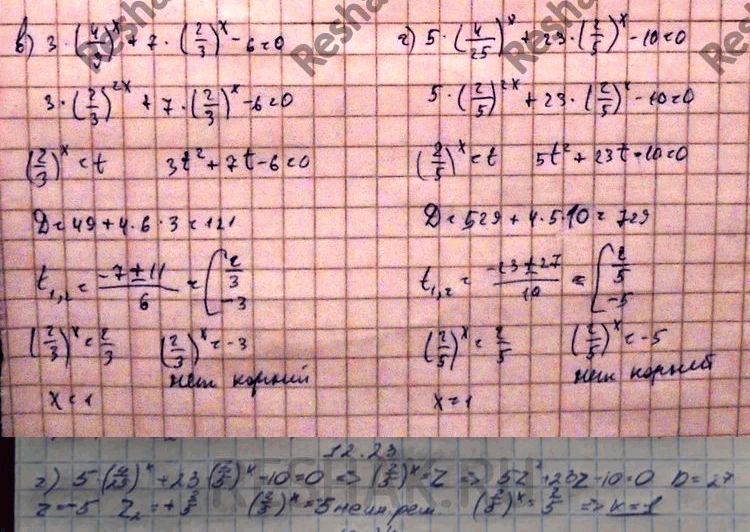 в) 3·(4/9)^x + 7·(2/3)^x - 6 = 0
3·(2/3)^2x + 7·(2/3)^x - 6 = 0
(2/3)^x = t 3t² + 7t - 6 = 0
D = 49 + 4·6·3 = 121
t₁,₂ = (-7 ± 11)/6 = [2/3; -3
(2/3)^x = 2/3 (2/3)^x = -3
нет корней
x = 1
г) 5·(4/25)^x + 23·(2/5)^x - 10 = 0
5·(2/5)^2x + 23·(2/5)^x - 10 = 0
(2/5)^x = t 5t² + 23t - 10 = 0
D = 529 + 4·5·10 = 729
t₁,₂ = (-23 ± 27)/10 = [2/5; -5
(2/5)^x = 2/5 (2/5)^x = -5
нет корней
x = 1
12.23
г) 5·(4/25)^x + 23(2/5)^x - 10 = 0 => (2/5)^x = z => 5z² + 23z - 10 = 0 D = 27
z = -5 z₂ = + 2/5 (2/5)^x = -5 нет реш. (2/5)^x = 2/5 => x = 1
RESHAK.RU